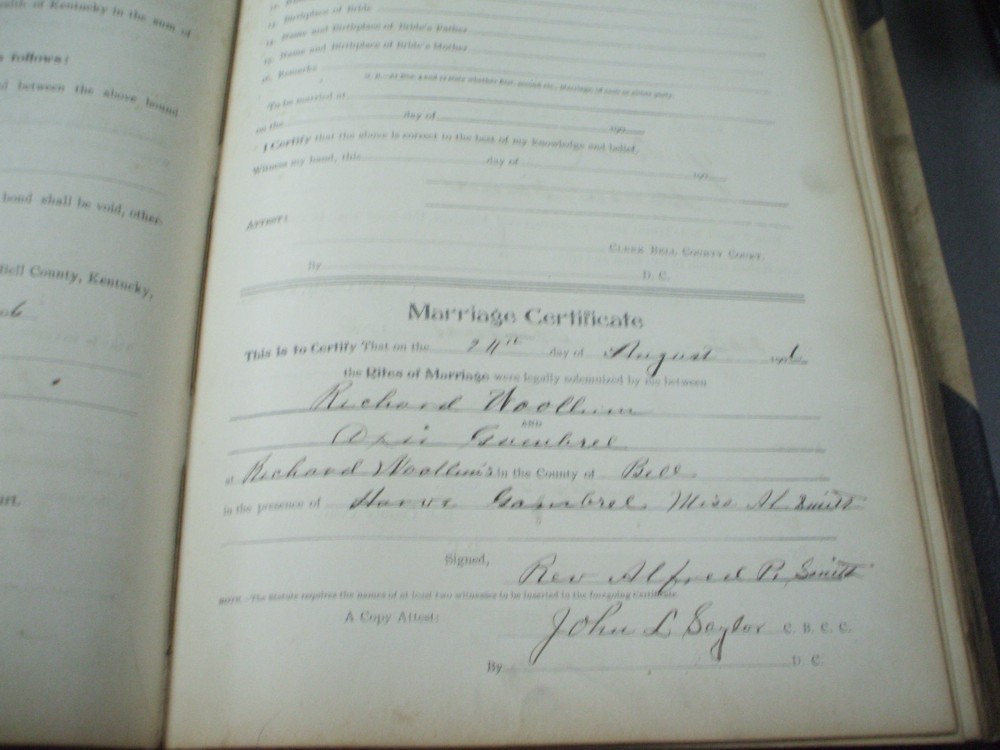 alth of Kentucky in the sum of
follows:
between the above bound
bond shall be void, other-
Bell County, Kentucky,
06
Birthplace of Bride
14. Name and Birthplace of Bride's Father
15. Name and Birthplace of Bride's Mother
16. Remarks
To be married at
on the day of 190
I Certify that the above is correct to the best of my knowledge and belief.
Witness my hand, this day of 190
ATTEST:
CLERK BELL COUNTY COURT.
By D. C.
Marriage Certificate
This is to Certify That on the 24th day of August 1906
the Rites of Marriage were legally solemnized by me between
Richard Woollum
AND
Oxie Gambrel
at Richard Woollum's in the County of Bell
in the presence of Gambrel, Miss Al Smith
Signed,
Rev Alfred P. Smith
NOTE.—The Statute requires the names of at least two witnesses to be inserted in the foregoing Certificate
A Copy Attest:
John L Saylor C. B. C. C.
By D. C.